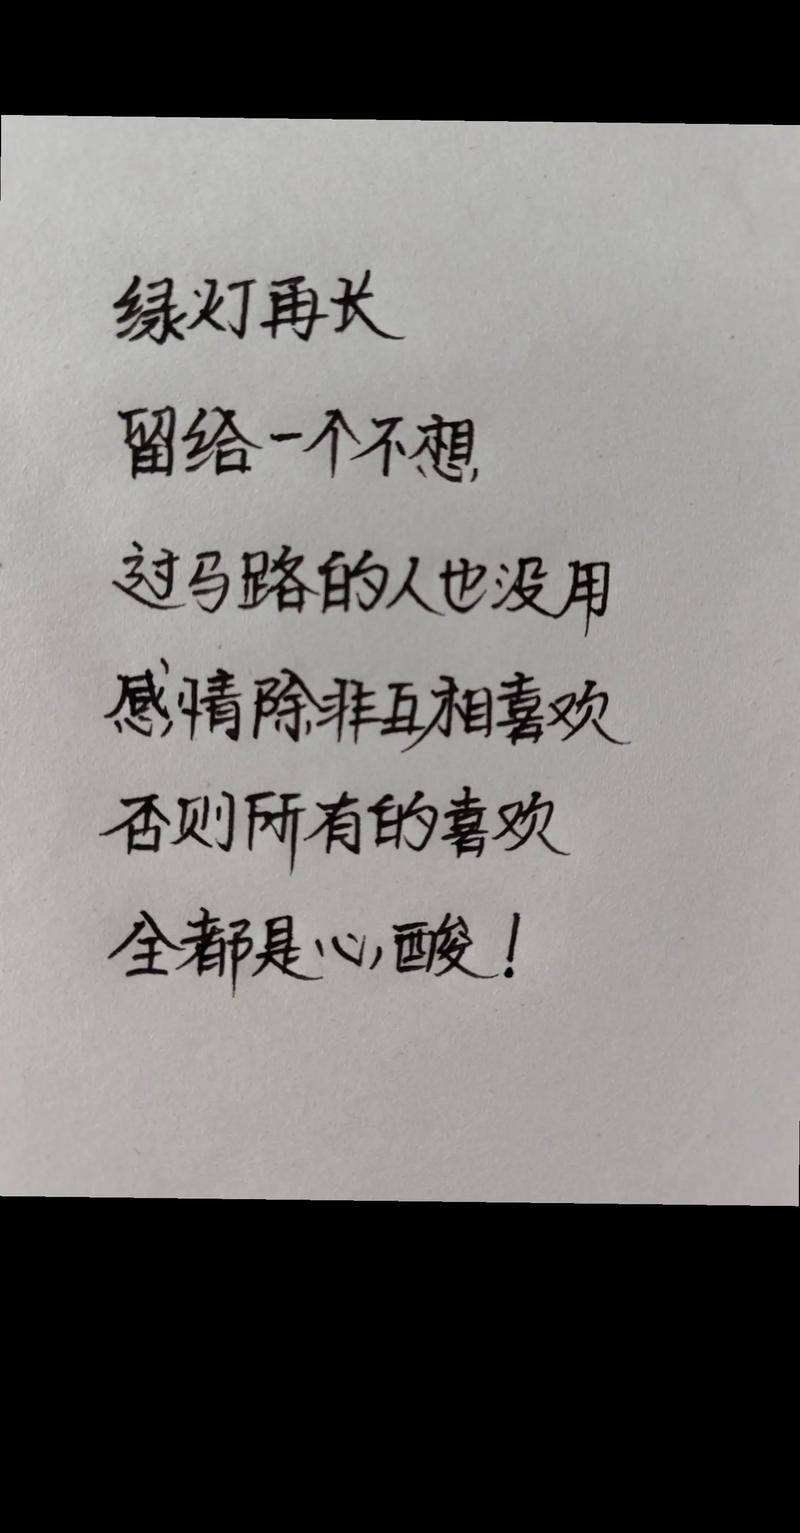 绿灯再长
留给一个不想
过马路的人也没用
感情除非互相喜欢
否则所有的喜欢
全都是心酸！